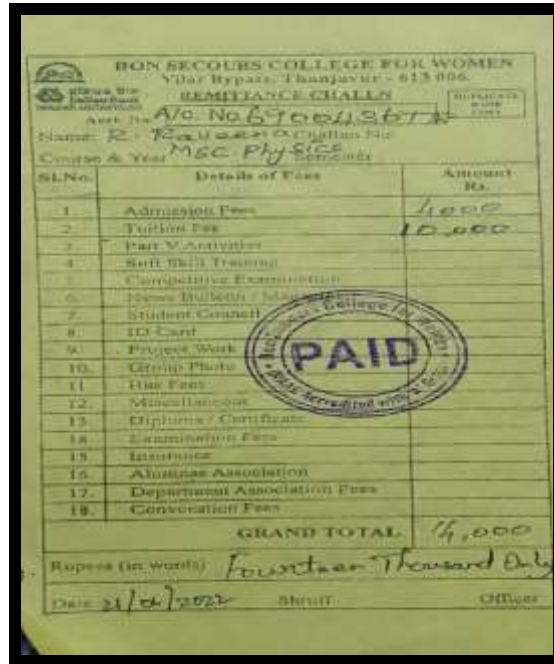 BON SECOURS COLLEGE FOR WOMEN
Vilar Bypass, Thanjavur - 613 006.
REMITTANCE CHALLN
DUPLICATE
COPY
A/c. No
Name: R. Raveena Challan No:
Course & Year MSC. Physics Semester
Sl.No. Details of Fees Amount Rs.
1. Admission Fees 4000
2. Tuition Fee 10,000
3. Part V Activities
4. Soft Skill Training
5. Competitive Examination
6. News Bulletin /
7. Student Council
8. ID Card
9. Project Work
10. Group Photo
11. Bus Fees
12. Miscellaneous
13. Diploma / Certificate
14. Examination Fees
15. Insurance
16. Alumnae Association
17. Department Association Fees
18. Convocation Fees
PAID
GRAND TOTAL 14,000
Rupees (in words) Fourteen Thousand Only
Date Shroff Officer